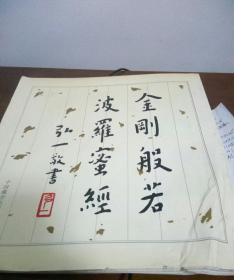 金剛般若
波羅蜜經
弘一敬書